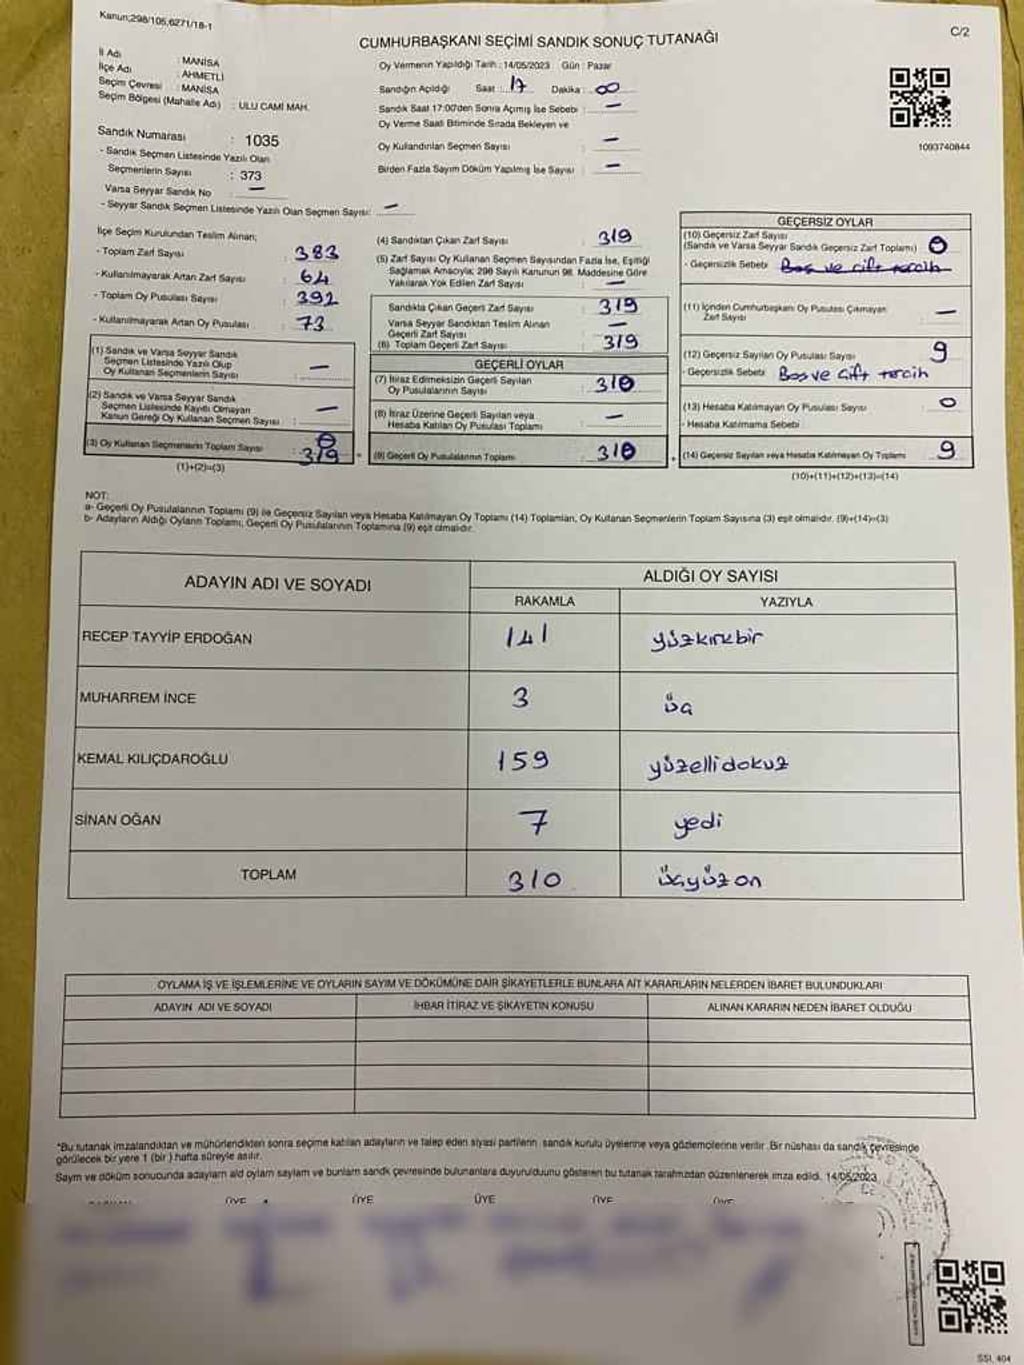 Kanun;298/105,6271/18-1
C/2
CUMHURBAŞKANI SEÇİMİ SANDIK SONUÇ TUTANAĞI
İl Adı : MANİSA
İlçe Adı : AHMETLİ
Seçim Çevresi : MANİSA
Seçim Bölgesi (Mahalle Adı) : ULU CAMİ MAH.
Sandık Numarası : 1035
- Sandık Seçmen Listesinde Yazılı Olan
Seçmenlerin Sayısı : 373
Varsa Seyyar Sandık No —
- Seyyar Sandık Seçmen Listesinde Yazılı Olan Seçmen Sayısı: —
Oy Vermenin Yapıldığı Tarih : 14/05/2023 Gün : Pazar
Sandığın Açıldığı Saat : 17 Dakika : 00
Sandık Saat 17:00'den Sonra Açımış İse Sebebi : —
Oy Verme Saati Bitiminde Sırada Bekleyen ve
Oy Kullandırılan Seçmen Sayısı : —
Birden Fazla Sayım Döküm Yapılmış İse Sayısı : —
1093740844
İlçe Seçim Kurulundan Teslim Alınan;
- Toplam Zarf Sayısı : 383
- Kullanılmayarak Artan Zarf Sayısı : 64
- Toplam Oy Pusulası Sayısı : 392
- Kullanılmayarak Artan Oy Pusulası : 73
(1) Sandık ve Varsa Seyyar Sandık
Seçmen Listesinde Yazılı Olup
Oy Kullanan Seçmenlerin Sayısı : —
(2) Sandık ve Varsa Seyyar Sandık
Seçmen Listesinde Kayıtlı Olmayan
Kanun Gereği Oy Kullanan Seçmen Sayısı : —
(3) Oy Kullanan Seçmenlerin Toplam Sayısı : 319
(1)+(2)=(3)
(4) Sandıktan Çıkan Zarf Sayısı : 319
(5) Zarf Sayısı Oy Kullanan Seçmen Sayısından Fazla İse, Eşitliği
Sağlamak Amacıyla; 298 Sayılı Kanunun 98. Maddesine Göre
Yakılarak Yok Edilen Zarf Sayısı : —
Sandıkta Çıkan Geçerli Zarf Sayısı : 319
Varsa Seyyar Sandıktan Teslim Alınan
Geçerli Zarf Sayısı : —
(6) Toplam Geçerli Zarf Sayısı : 319
GEÇERLİ OYLAR
(7) İtiraz Edilmeksizin Geçerli Sayılan
Oy Pusulalarının Sayısı : 310
(8) İtiraz Üzerine Geçerli Sayılan veya
Hesaba Katılan Oy Pusulası Toplamı : —
(9) Geçerli Oy Pusulalarının Toplamı : 310
GEÇERSİZ OYLAR
(10) Geçersiz Zarf Sayısı
(Sandık ve Varsa Seyyar Sandık Geçersiz Zarf Toplamı) : 0
- Geçersizlik Sebebi : Boş ve çift tercih
(11) İçinden Cumhurbaşkanı Oy Pusulası Çıkmayan
Zarf Sayısı : —
(12) Geçersiz Sayılan Oy Pusulası Sayısı : 9
- Geçersizlik Sebebi : Boş ve Çift tercih
(13) Hesaba Katılmayan Oy Pusulası Sayısı : 0
- Hesaba Katılmama Sebebi :
(14) Geçersiz Sayılan veya Hesaba Katılmayan Oy Toplamı : 9
(10)+(11)+(12)+(13)=(14)
NOT:
a- Geçerli Oy Pusulalarının Toplamı (9) ile Geçersiz Sayılan veya Hesaba Katılmayan Oy Toplamı (14) Toplamları, Oy Kullanan Seçmenlerin Toplam Sayısına (3) eşit olmalıdır. (9)+(14)=(3)
b- Adayların Aldığı Oyların Toplamı, Geçerli Oy Pusulalarının Toplamına (9) eşit olmalıdır.
ADAYIN ADI VE SOYADI ALDIĞI OY SAYISI
RAKAMLA YAZIYLA
RECEP TAYYİP ERDOĞAN 141 yüzkırkbir
MUHARREM İNCE 3 üç
KEMAL KILIÇDAROĞLU 159 yüzellidokuz
SİNAN OĞAN 7 yedi
TOPLAM 310 üçyüzon
OYLAMA İŞ VE İŞLEMLERİNE VE OYLARIN SAYIM VE DÖKÜMÜNE DAİR ŞİKAYETLERLE BUNLARA AİT KARARLARIN NELERDEN İBARET BULUNDUKLARI
ADAYIN ADI VE SOYADI İHBAR İTİRAZ VE ŞİKAYETİN KONUSU ALINAN KARARIN NEDEN İBARET OLDUĞU
*Bu tutanak imzalandıktan ve mühürlendikten sonra seçime katılan adayların ve talep eden siyasi partilerin sandık kurulu üyelerine veya gözlemcilerine verilir. Bir nüshası da sandık çevresinde
görülecek bir yere 1 (bir) hafta süreyle asılır.
Sayım ve döküm sonucunda adayların ald oyların sayıların bunların sandk çevresinde bulunanlara duyurulduunu gösteren bu tutanak tarafımızdan düzenlenerek imza edildi. 14/05/2023
ÜYE ÜYE ÜYE ÜYE ÜYE
SSI, 404